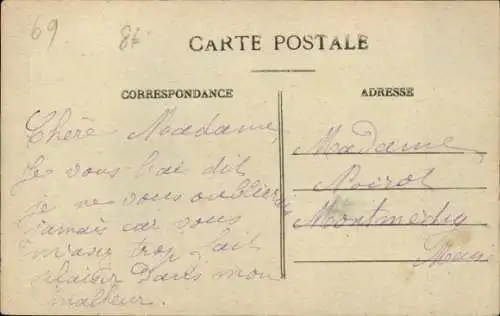 69
86
CARTE POSTALE
CORRESPONDANCE
ADRESSE
Chère Madame,
Je vous l'ai dit
je ne vous oublierai
jamais car vous
m'avez trop fait
plaisir dans mon
malheur.
Madame
Noirot
Montmédy
Meuse